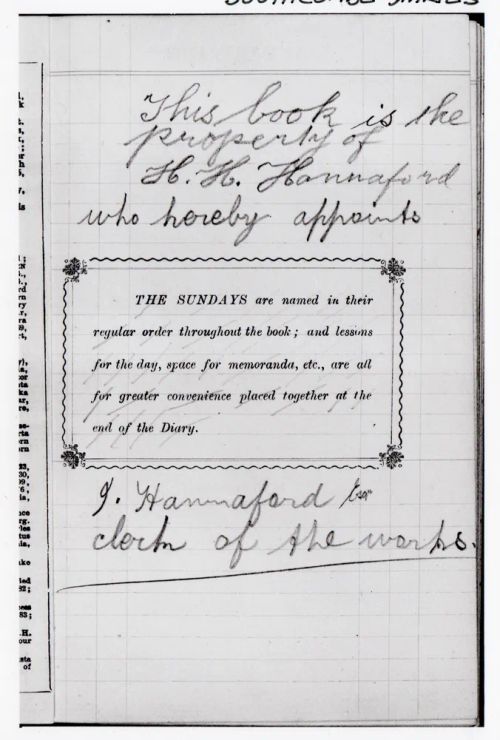 This book is the
property of
H. H. Hannaford
who hereby appoints
THE SUNDAYS are named in their
regular order throughout the book; and lessons
for the day, space for memoranda, etc., are all
for greater convenience placed together at the
end of the Diary.
J. Hannaford Esqr
clerk of the works.